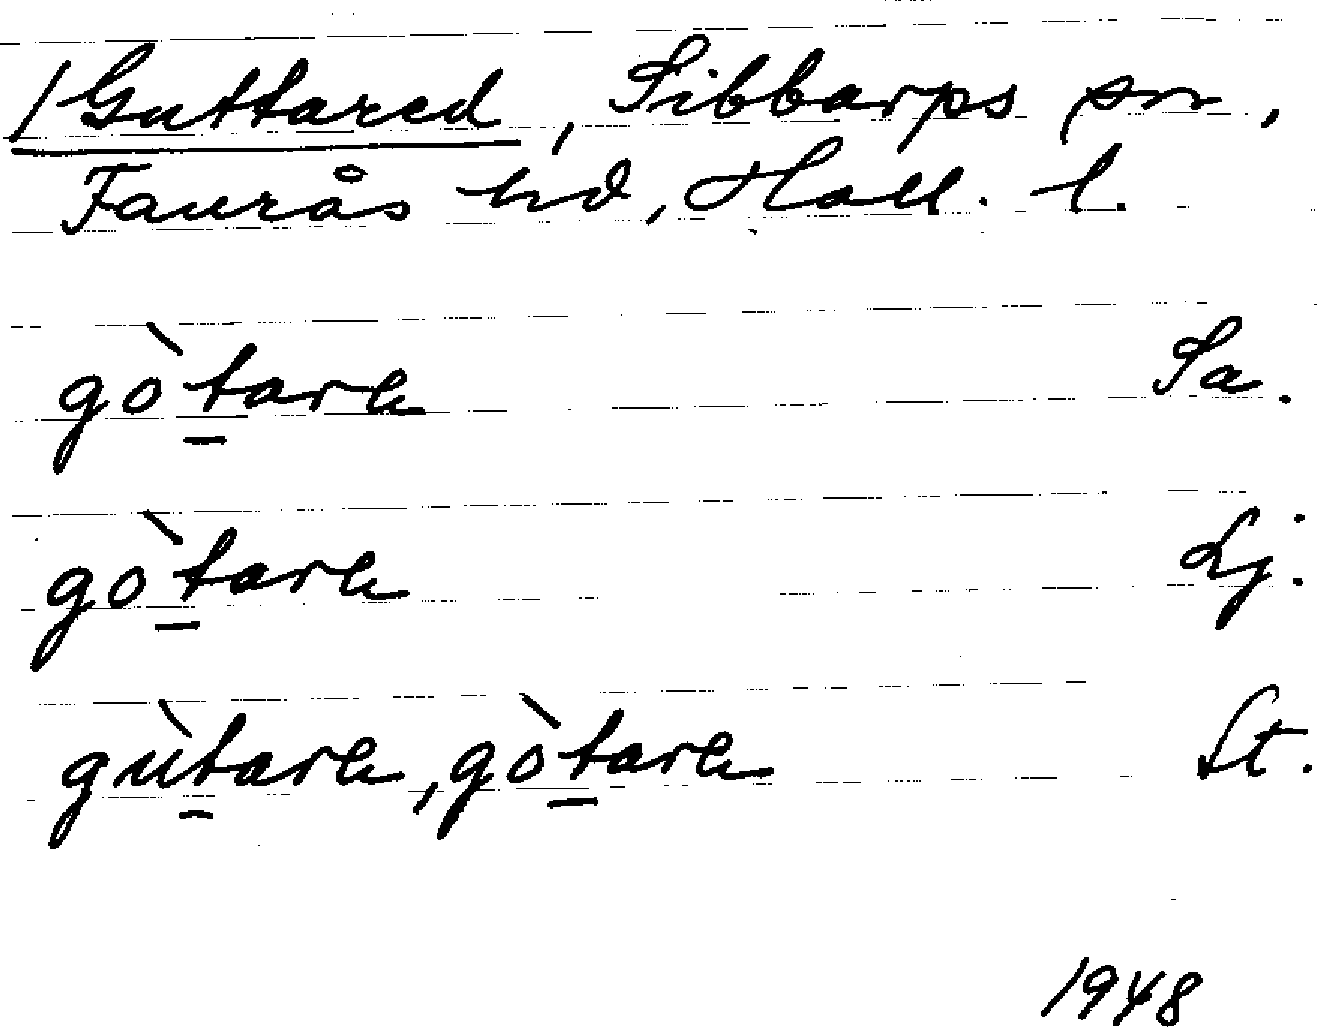 /Guttared, Sibbarps sn,
Faurås hd, Hall. l.
gòtare Sa.
gòtare Lj.
gùtare, gòtare St.
1948